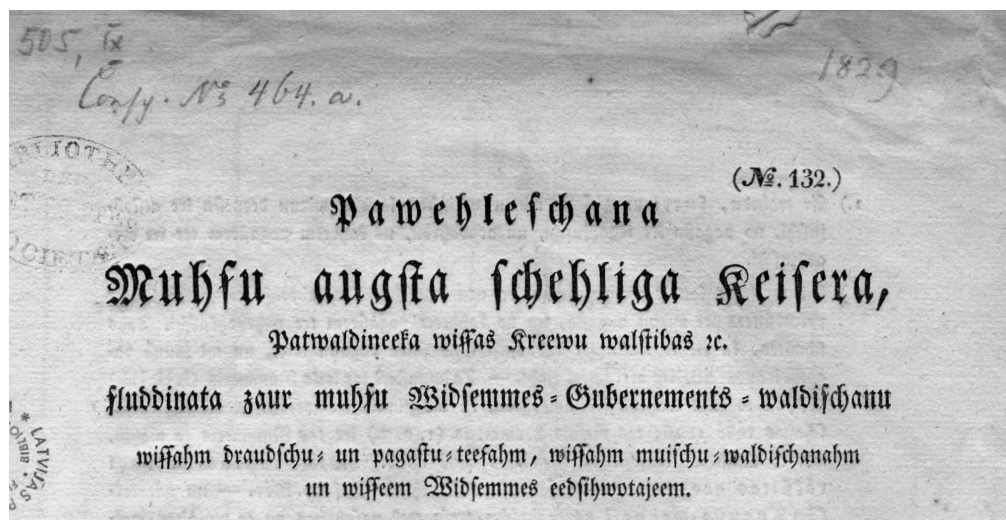 505, IX
Consp. № 464. a.
1829
BIBLIOTHE
DER
SOCIET
(№. 132.)
Pawehleschana
Muhſu augſta ſchehliga Keiſera,
Patwaldineeka wiſſas Kreewu walſtibas ꝛc.
ſluddinata zaur muhſu Widſemmes⸗Gubernements⸗waldiſchanu
wiſſahm draudſchu⸗ un pagaſtu⸗teeſahm, wiſſahm muiſchu⸗waldiſchanahm
un wiſſeem Widſemmes eedſihwotajeem.
LATVIJAS